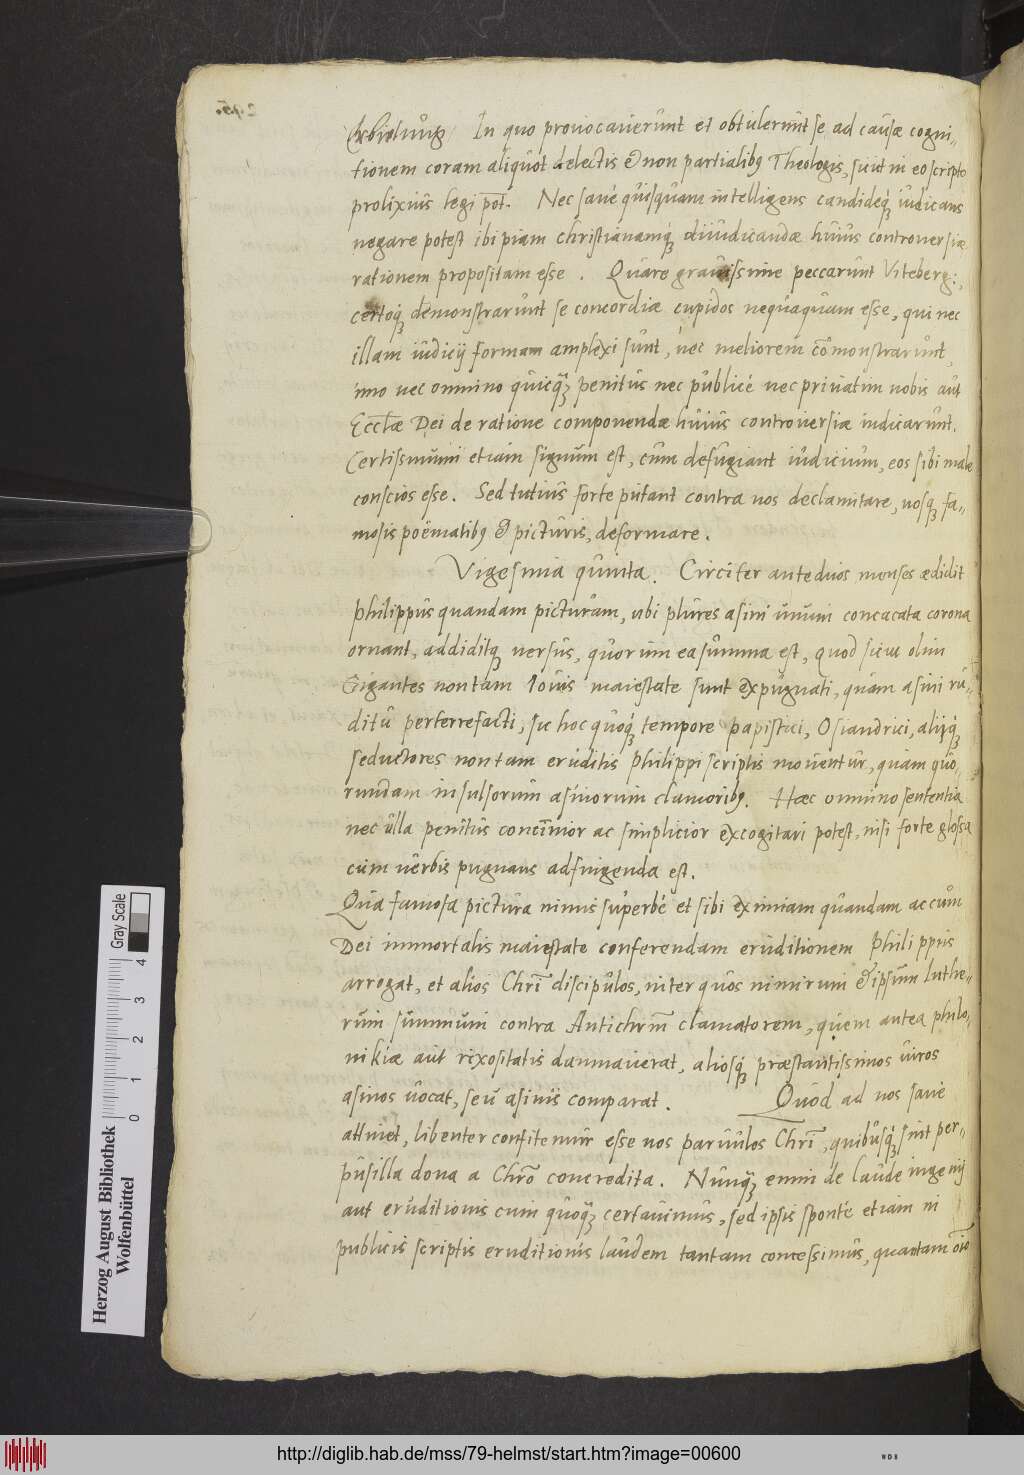 Erbietung In quo provocaverunt et obtulerunt se ad causæ cogni-
tionem coram aliquot delectis & non partialibꝰ Theologis, sicut in eo scripto
prolixius legi pōt. Nec sané quisquam intelligens candideq́ʒ iudicans
negare potest ibi piam christianamq́ʒ diiudicandæ huius controversiæ
rationem propositam esse. Quare gravissime peccarunt Viteberg:,
certoq́ʒ demonstrarunt se concordiæ cupidos nequaquam esse, qui nec
illam iudicij formam amplexi sunt, nec meliorem cōmonstrarunt,
imo nec omnino quicq̄ʒ penitus nec publicé nec privatim nobis aut
Eccłæ Dei de ratione componendæ huius controversiæ indicarunt.
Certissimum etiam signum est, cum defugiant iudicium, eos sibi male
conscios esse. Sed tutius forte putant contra nos declamitare, nosqʒ fa-
mosis poëmatibꝰ & picturis, deformare.
Vigesima quinta. Circiter ante duos menses ædidit
philippus quandam picturam, ubi plures asini unum concacata corona
ornant, additqʒ versus, quorum ea summa est, quod sicut olim
Gigantes non tam Iovis maiestate sunt expugnati, quam asini ru-
ditu perterrefacti, sic hoc quoq́ʒ tempore papistici, Osiandrici, alijq́ʒ
seductores non tam eruditis philippi scriptis moventur, quam quo-
rundam insulsorum asinorum clamoribꝰ. Hæc omnino sententia
nec ulla penitus concinnior ac simplicior excogitari potest, nisi forte glossa
cum verbis pugnans adfingenda est.
Qua famosa pictura nimis superbé et sibi eximiam quandam ac cum
Dei immortalis maiestate conferendam eruditionem philippus
arrogat, et alios Chrī discipulos, inter quos nimirum & ipsum Luthe-
rum summum contra Antichrm̄ clamatorem, quem antea philo-
nikiæ aut rixositatis damnaverat, aliosq́ʒ præstantissimos viros
asinos vocat, seu asinis comparat. Quod ad nos sane
attinet, libenter confitemur esse nos parvulos Chrī, quibusq́ʒ sint per-
pusilla dona a Chrō concredita. Nunq̄ʒ enim de laude ingenij
aut eruditionis cum quoq̄ʒ certavimus, sed ipsis sponté etiam in
publicis scriptis eruditionis laudem tantam concessimus, quantam oīo
Herzog August Bibliothek
Wolfenbüttel
0 1 2 3 4
Gray Scale
http://diglib.hab.de/mss/79-helmst/start.htm?image=00600
WDB